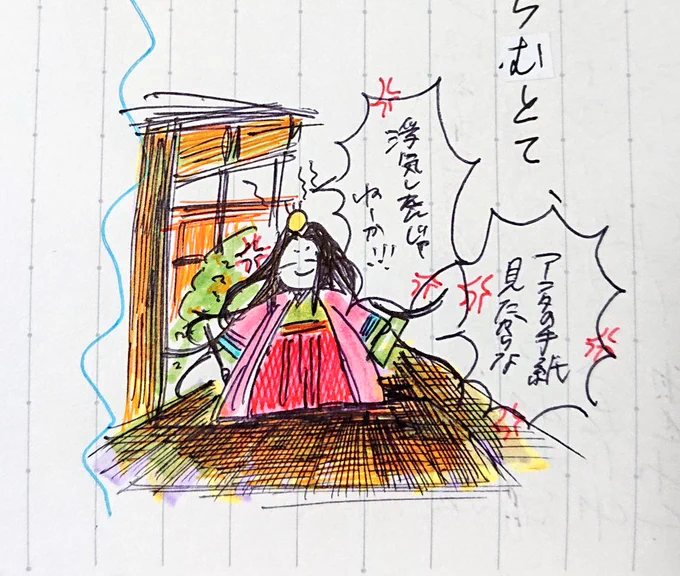 らむとて
アンタの手紙
見たからな
浮気してんじゃ
ねーか!!!